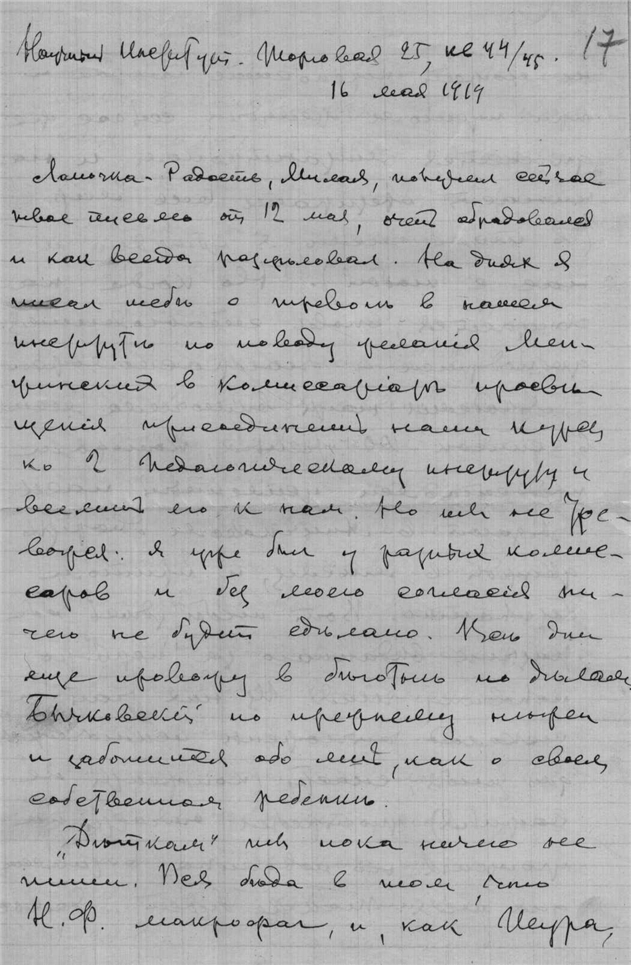 Научный Институт. Торговая 25, кв 44/45. 17
16 мая 1919
Лапочка-Радость, Милая, получил сейчас
твое письмо от 12 мая, очень обрадовался
и как всегда расцеловал. На днях я
писал тебѣ о тревогѣ в нашем
институтѣ по поводу желанія Мен-
жинской в Комиссаріатѣ просвѣ-
щенія присоединить наши курсы
ко 2 Педагогическому институту и
вселить его к нам. Но ты не тре-
вожься: я уже был у разных комис-
саров и без моего согласія ни-
чего не будет сдѣлано. Всѣ дни
еще провожу в бѣготнѣ по дѣлам.
Бычковскій по прежнему нѣжен
и заботится обо мнѣ, как о своем
собственном ребенкѣ.
„Дѣткам" ты пока ничего не
пиши. Вся бѣда в том, что
Н. Ф. макрофаг, и, как Шура,